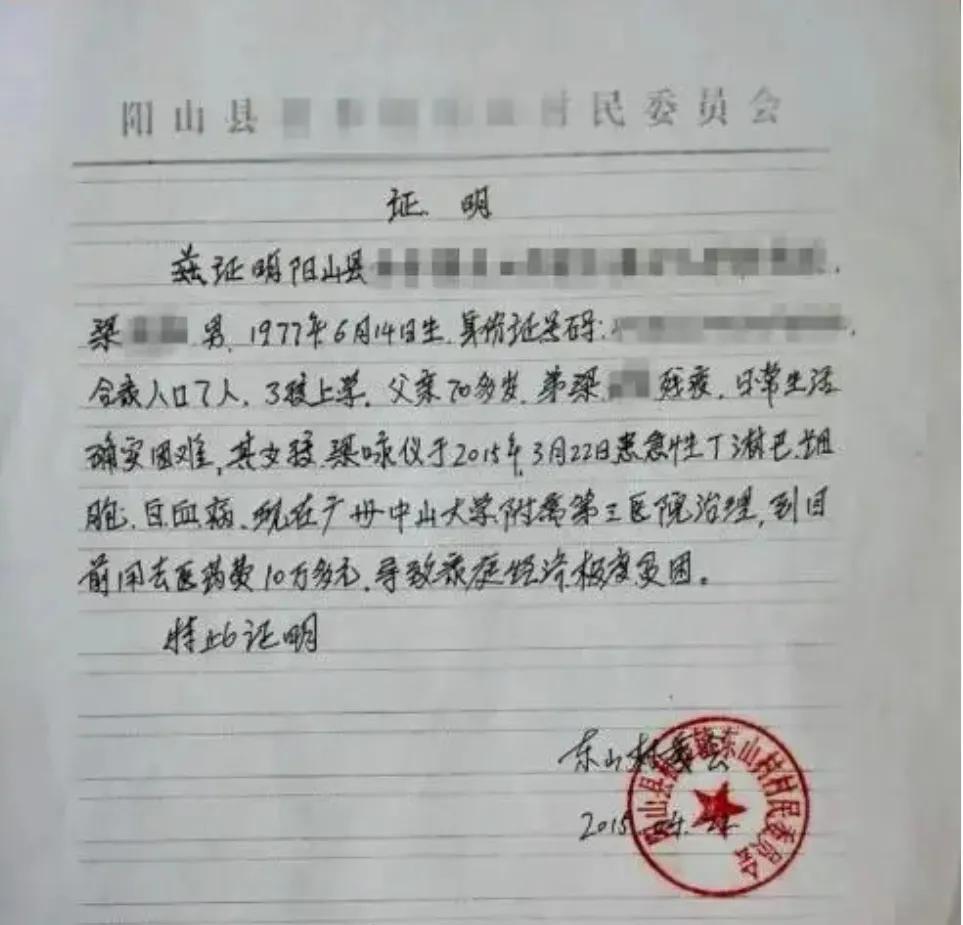 阳山县 村民委员会
证明
兹证明阳山县
梁 男，1977年6月14日生，身份证号码：
全家人口7人，3孩上学，父亲70多岁，弟梁 残疾，日常生活
确实困难，其女孩梁咏仪于2015年3月22日患急性T淋巴细
胞白血病，现在广州中山大学附属第三医院治理，到目
前用去医药费10万多元，导致家庭经济极度贫困。
特此证明
东山村委会
2015.04.
阳山县 镇东山村村民委员会